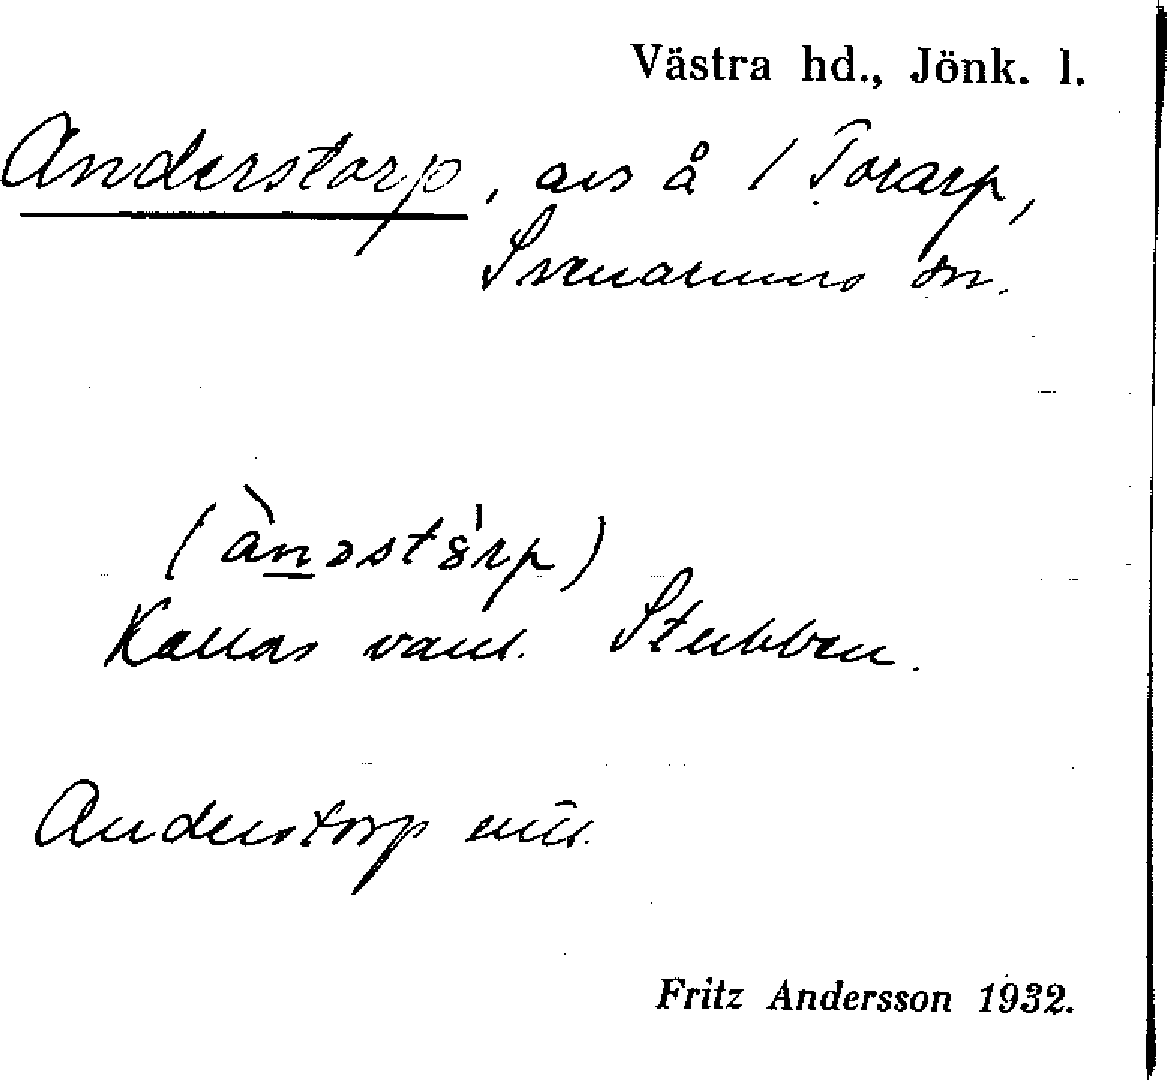 Västra hd., Jönk. l.
Anderstorp, avs å 1 Torarp,
Svenarums sn.
(ànəstórp)
Kallas vanl. Stubben.
Anderstorp
Fritz Andersson 1932.